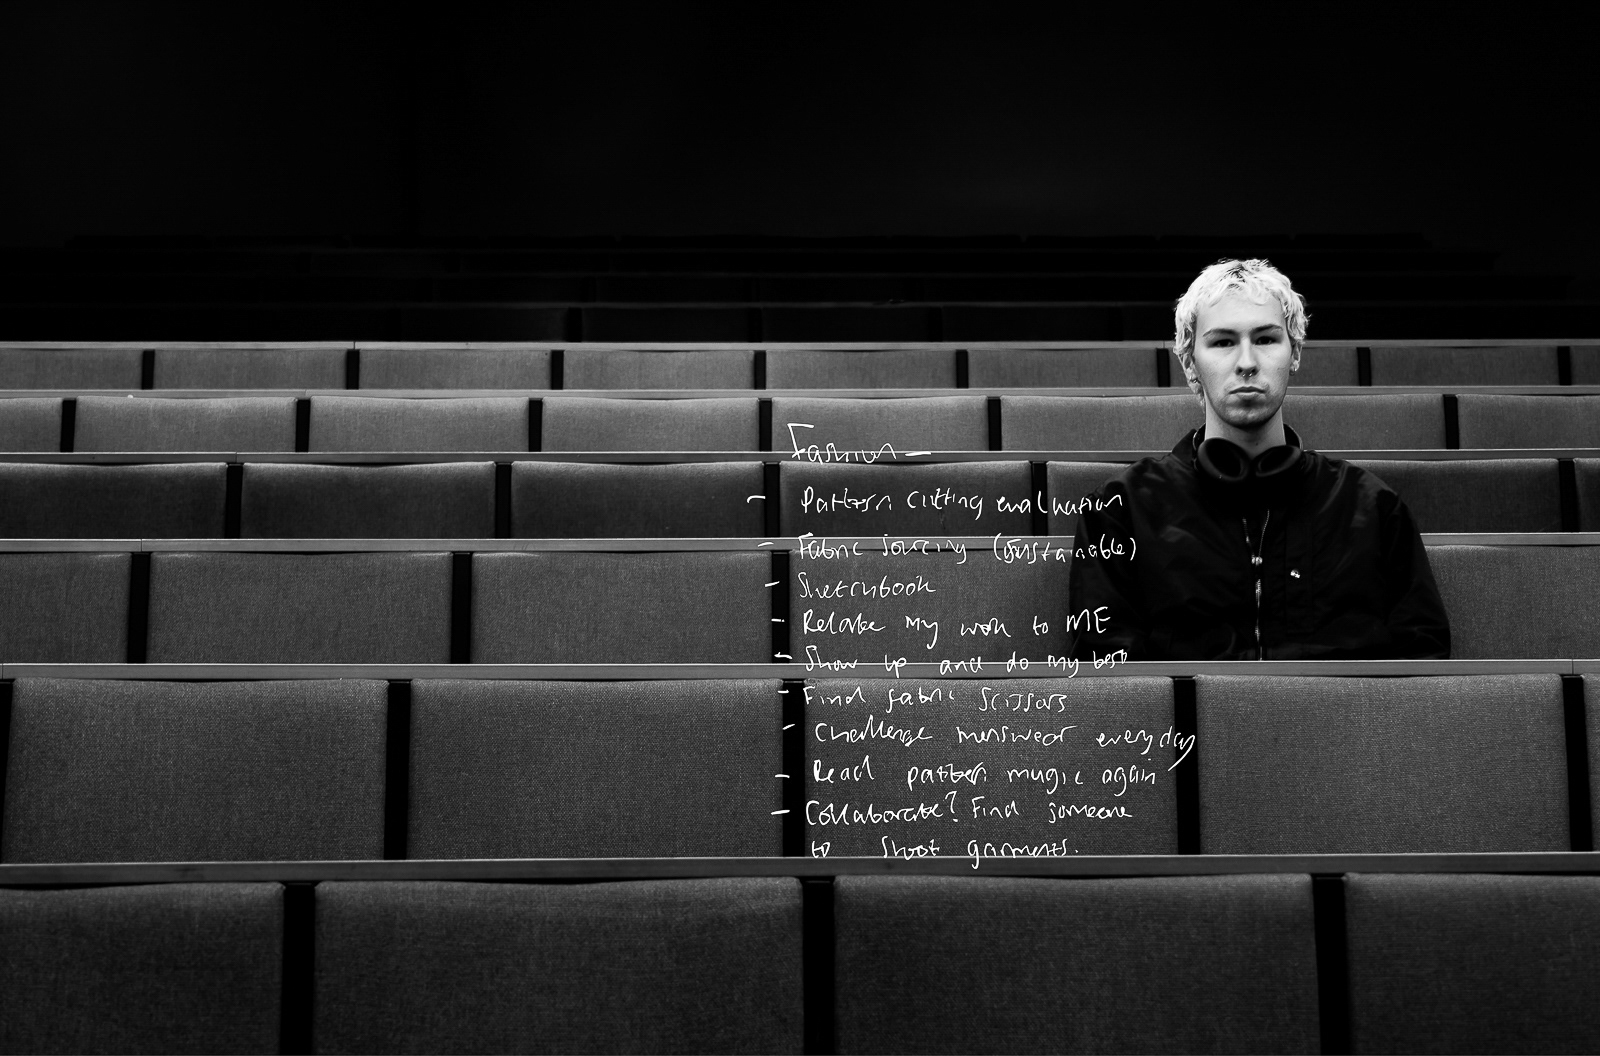 Fashion -
- Pattern cutting evaluation
- Fabric sourcing (sustainable)
- Sketchbook
- Relate my work to ME
- Show up and do my best
- Find fabric scissors
- Challenge menswear everyday
- Read pattern magic again
- Collaborate? Find someone
to shoot garments.